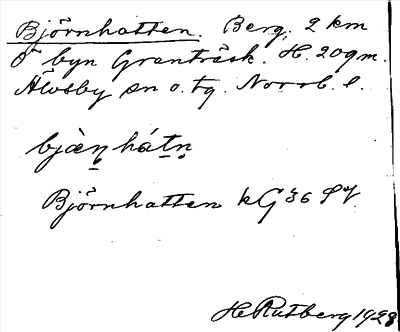 Björnhatten. Berg, 2 km
Ö byn Granträsk. H. 209 m.
Älvsby sn o. tg. Norrb. l.
bjæ̀n̥ hátn̥
Björnhatten kG36 SV
H. Rutberg 1928